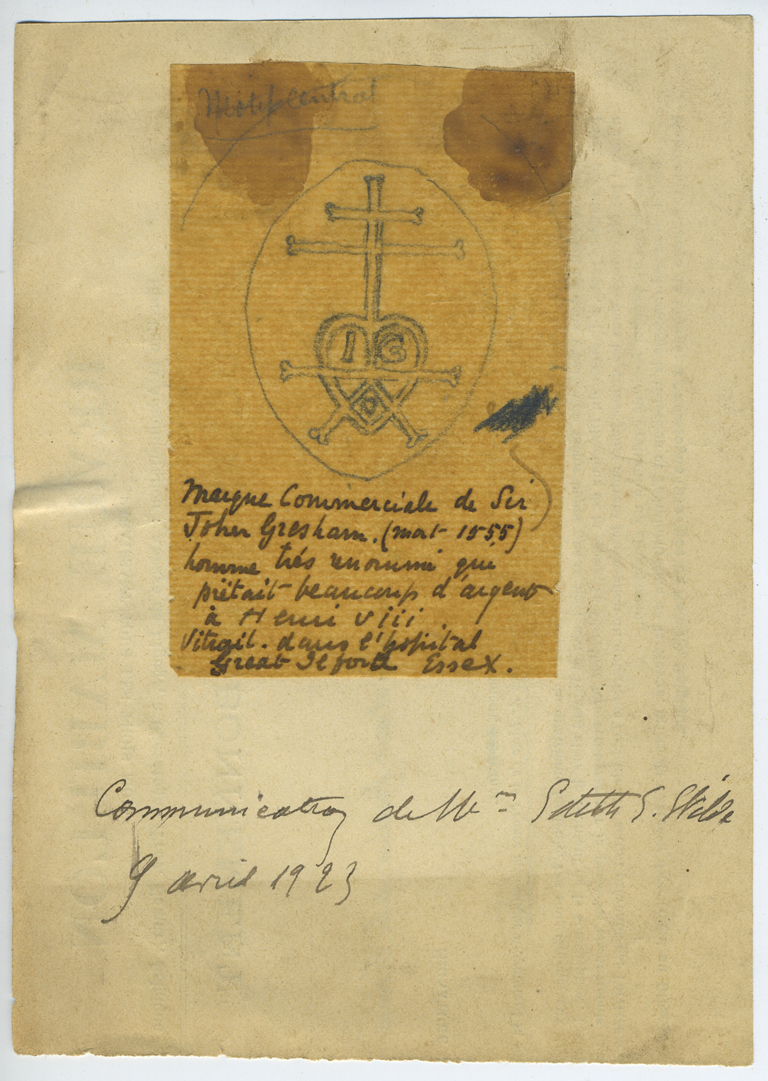 Motif central
I G
Marque Commerciale de Sir
John Gresham. (mort 1555)
homme très renommé qui
prêtait beaucoup d'argent
à Henri viii
Vitrail. dans l'hopital
Great Ilford Essex.
Communication de Mm Edith S.
9 avril 1923